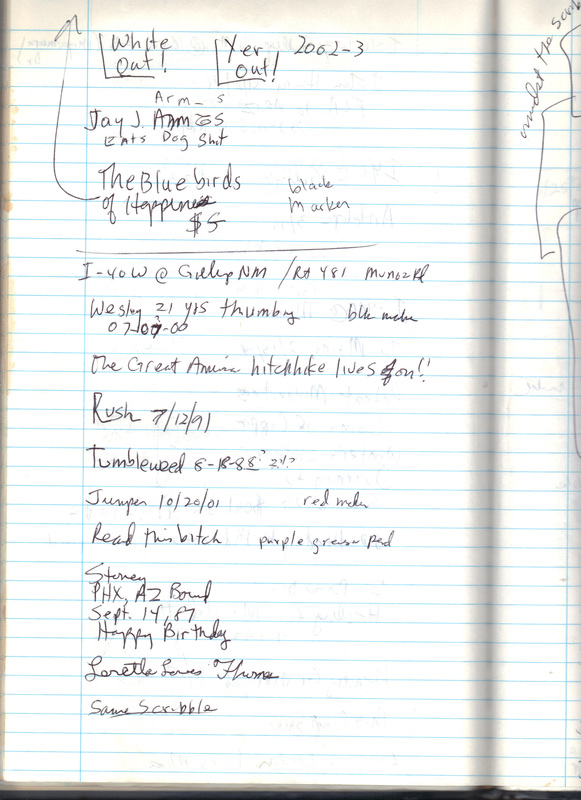 White Out! Yer Out! 2002-3
Arm_s
Jay J. Armes
Eats Dog Shit
The Bluebirds black
of Happiness marker
$5
I-40W @ Gallup NM / Rt 481 Munoz Rd
Wesley 21 yrs thumbing blk marker
07-07-00
The Great American hitchhike lives on!!
Rush 7/12/91
Tumbleweed 8-18-88
Jumper 10/20/01 red marker
Read this bitch purple grease
Stoney
PHX, AZ Bound
Sept. 14, 87
Happy Birthday
Loretta Loves
Same Scribble
amidst the